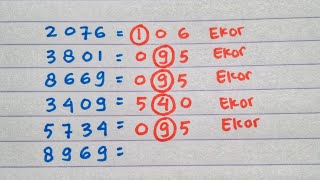 2076 = 1 0 6 Ekor
3801 = 0 9 5 Ekor
8669 = 0 9 5 Ekor
3409 = 5 4 0 Ekor
5734 = 0 9 5 Ekor
8969 =